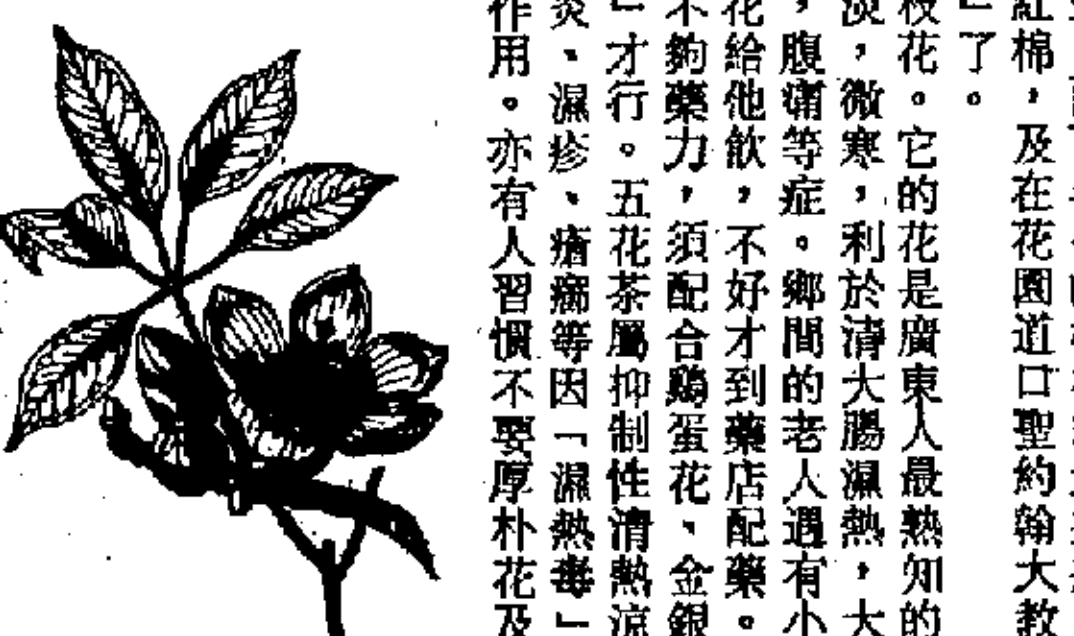 紅棉，及在花園道口聖約翰大教
」了。
枝花。它的花是廣東人最熟知的
淡，微寒，利於清大腸濕熱，大
，腹痛等症。鄉間的老人遇有小
花給他飲，不好才到藥店配藥。
不夠藥力，須配合鷄蛋花、金銀
」才行。五花茶屬抑制性清熱涼
炎、濕疹、瘡癤等因「濕熱毒」
作用。亦有人習慣不要厚朴花及